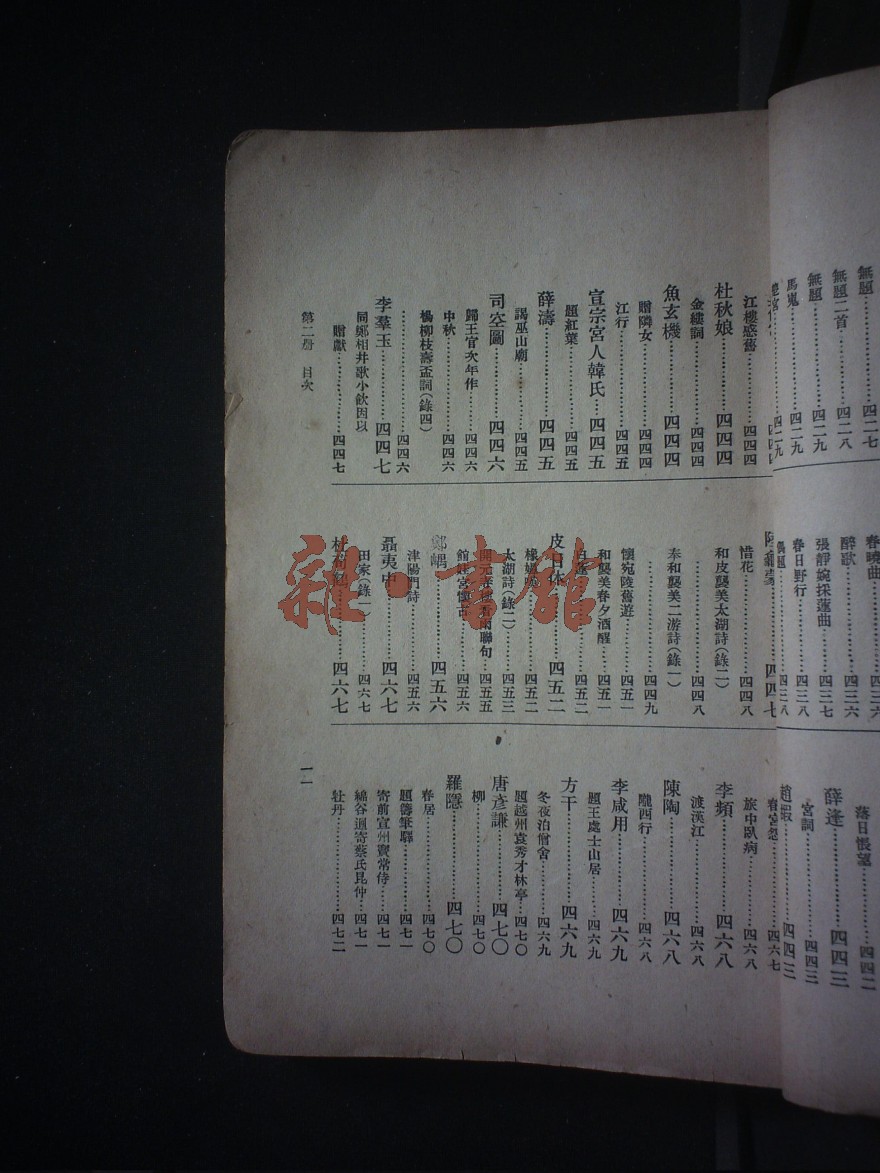 無題……四二七
無題二首……四二八
無題……四二九
馬嵬……四二九
春曉曲……四三六
醉歌……四三六
張靜婉採蓮曲……四三七
春日野行……四三八
偶題……四三八
落日悵望……四四二
薛逢……四四三
宮詞……四四三
趙嘏
江樓感舊……四四四
杜秋娘……四四四
金縷詞……四四四
魚玄機……四四四
贈隣女……四四四
江行……四四五
宣宗宮人韓氏……四四五
題紅葉……四四五
薛濤……四四五
謁巫山廟……四四五
司空圖……四四六
歸王官次年作……四四六
中秋……四四六
楊柳枝壽盃詞(錄四)
……四四六
李羣玉……四四七
同鄭相井歌小飲因以
贈獻……四四七
陸龜蒙……四四七
惜花……四四八
和皮襲美太湖詩(錄二)
……四四八
奉和襲美二游詩(錄一)
……四四九
懷宛陵舊遊……四五一
和襲美春夕酒醒……四五一
白蓮……四五二
皮日休……四五二
……四五二
太湖詩(錄二)……四五三
開元寺 聯句……四五五
館娃宮懷古……四五六
鄭嵎……四五六
津陽門詩……四五六
聶夷中……四六七
田家(錄一)……四六七
杜荀鶴……四六七
春宮怨……四六七
旅中臥病……四六八
李頻……四六八
渡漢江……四六八
陳陶……四六八
隴西行……四六八
李咸用……四六九
題王處士山居……四六九
方干……四六九
冬夜泊僧舍……四六九
題越州袁秀才林亭……四七〇
唐彥謙……四七〇
柳……四七〇
羅隱……四七〇
春居……四七〇
題籌筆驛……四七一
寄前宣州竇常侍……四七一
綿谷迴寄蔡氏昆仲……四七一
牡丹……四七二
第二册 目次
一一
雜·書館